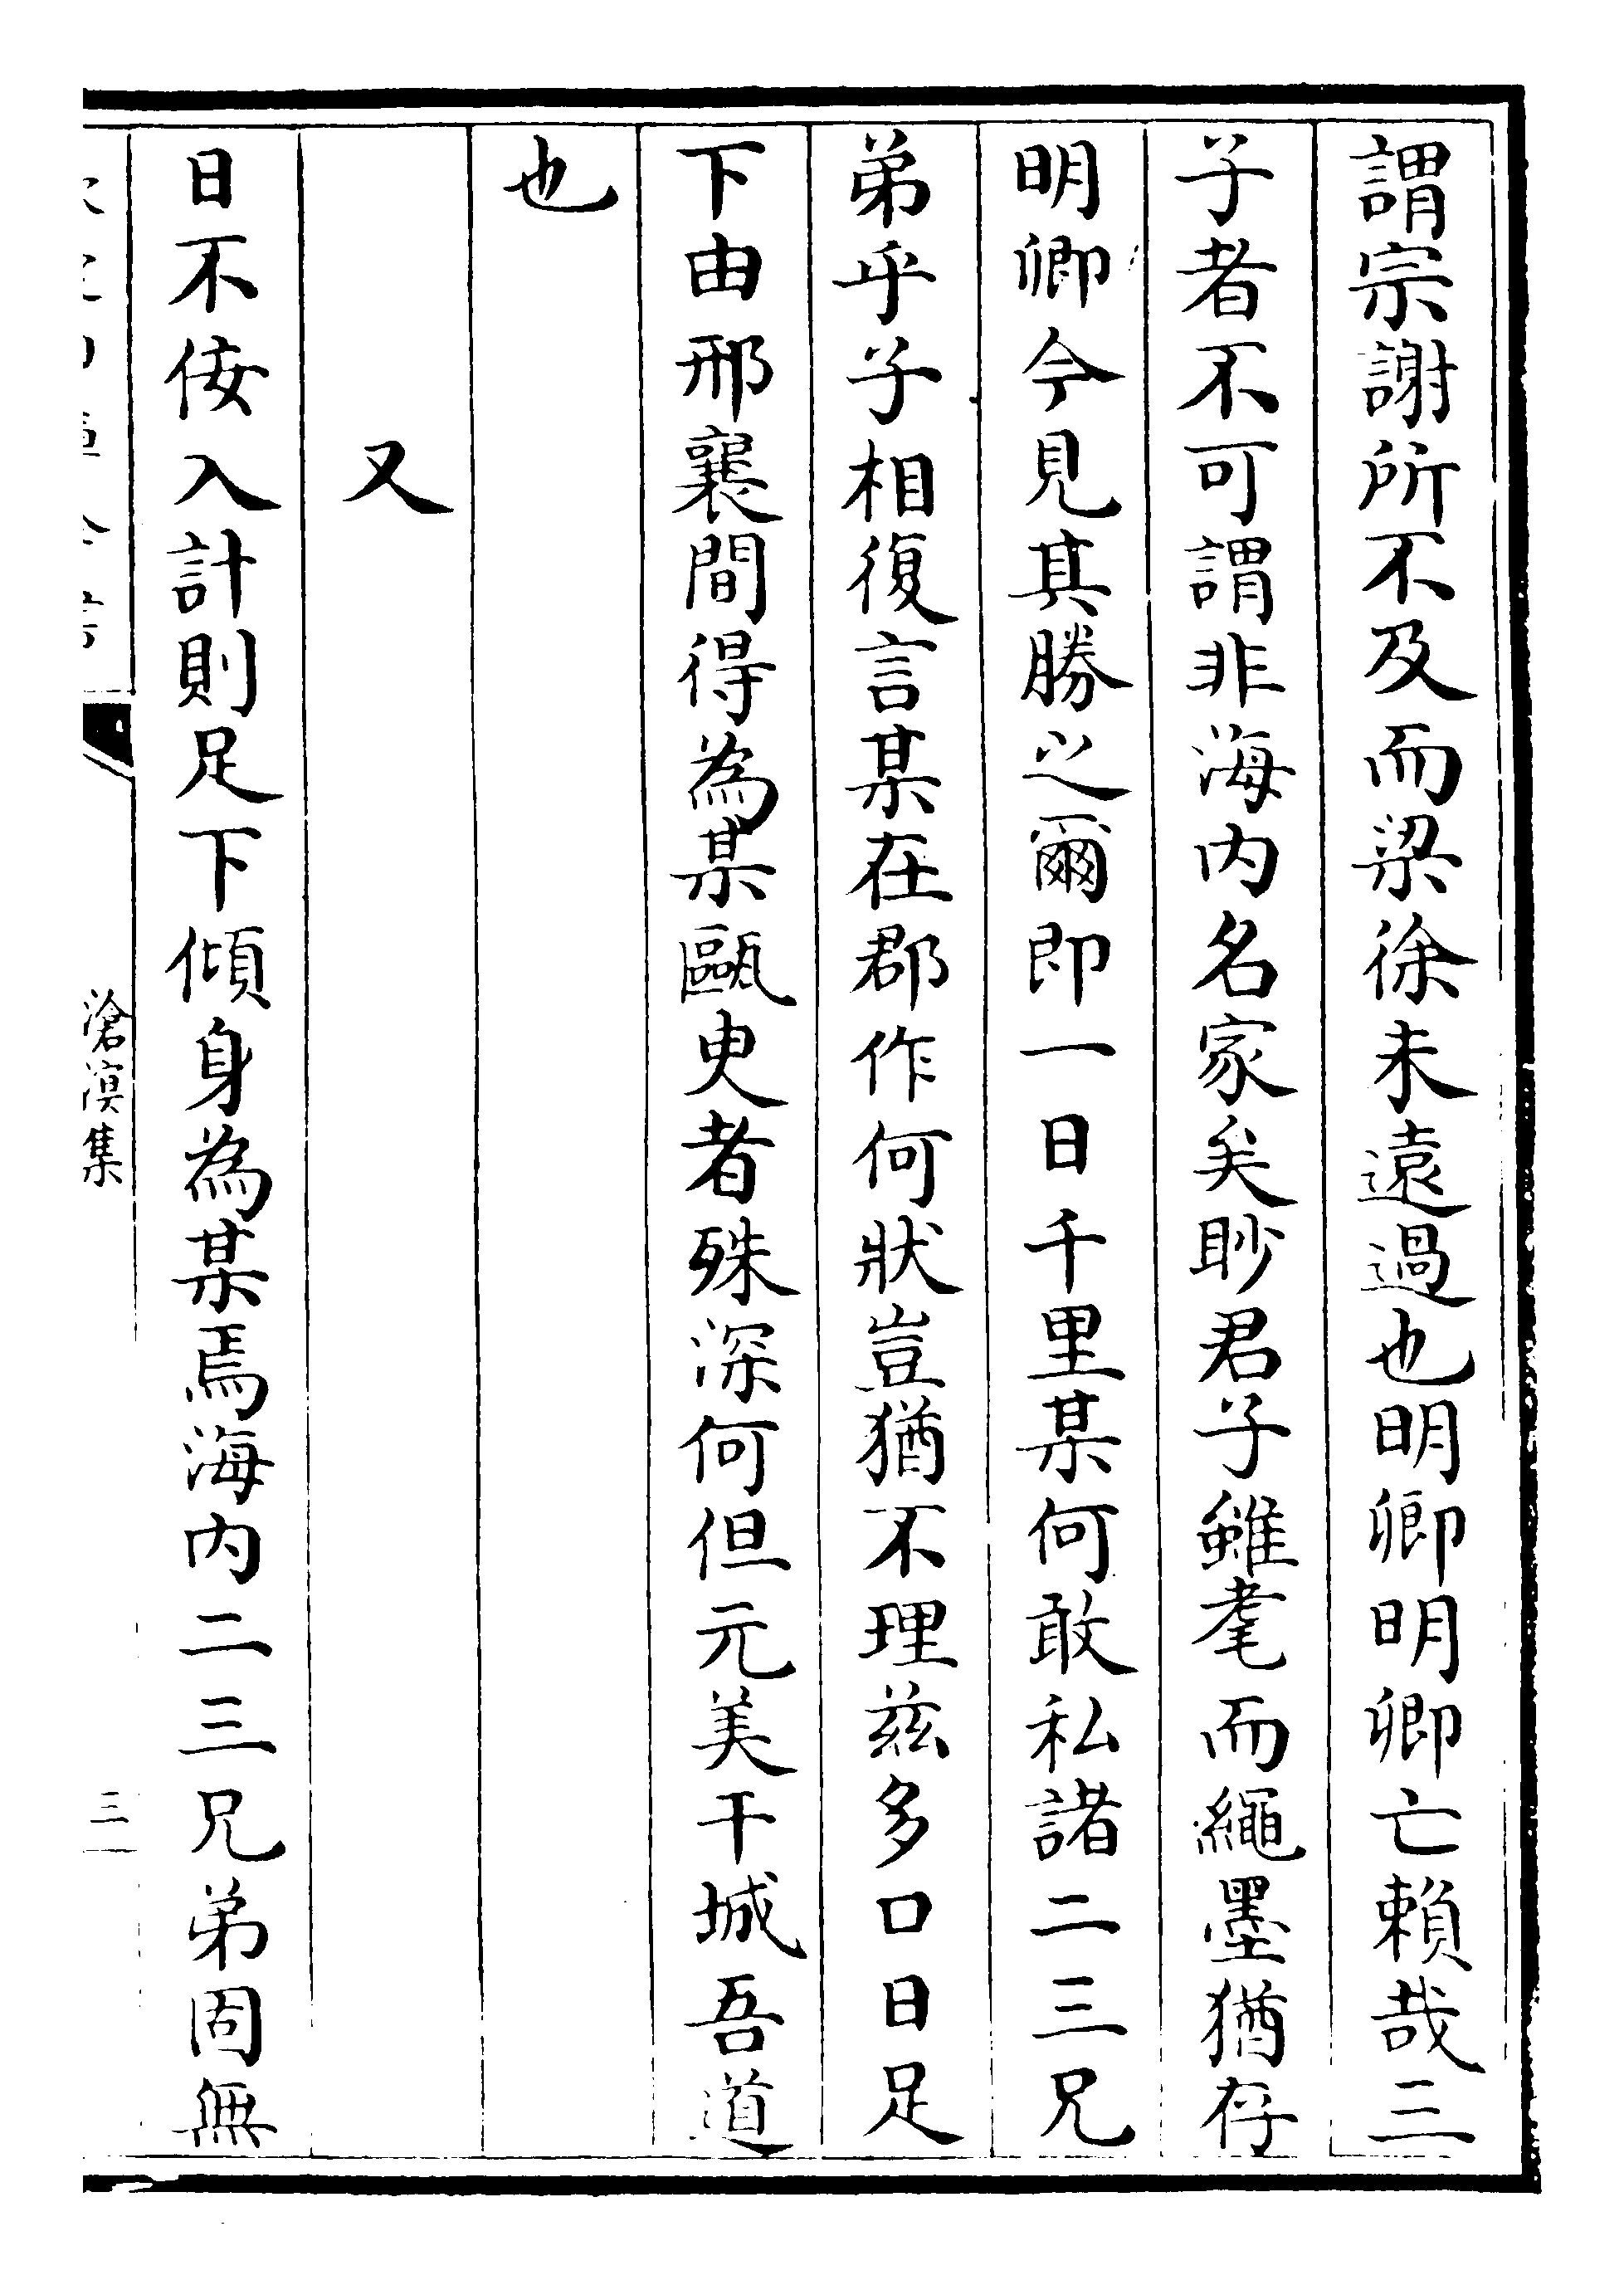 謂宗謝所不及而梁徐未遠過也明卿明卿亡賴哉三
子者不可謂非海內名家矣眇君子雖耄而繩墨猶存
明卿今見其勝之爾即一日千里某何敢私諸二三兄
弟乎子相復言某在郡作何狀豈猶不理茲多口日足
下由邢襄間得為某甌臾者殊深何但元美干城吾道
也
又
日不佞入計則足下傾身為某焉海內二三兄弟固無
滄溟集
三